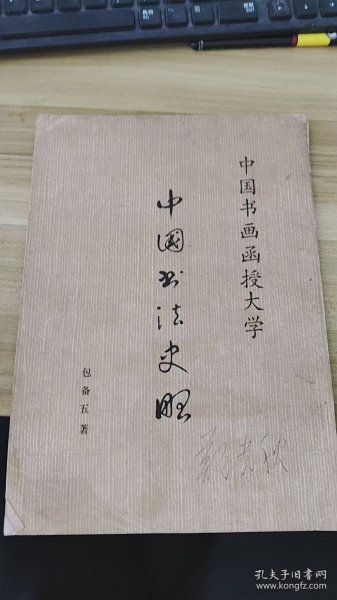 中国书画函授大学
中國书法史略
包备五著
孔夫子旧书网
www.kongfz.com